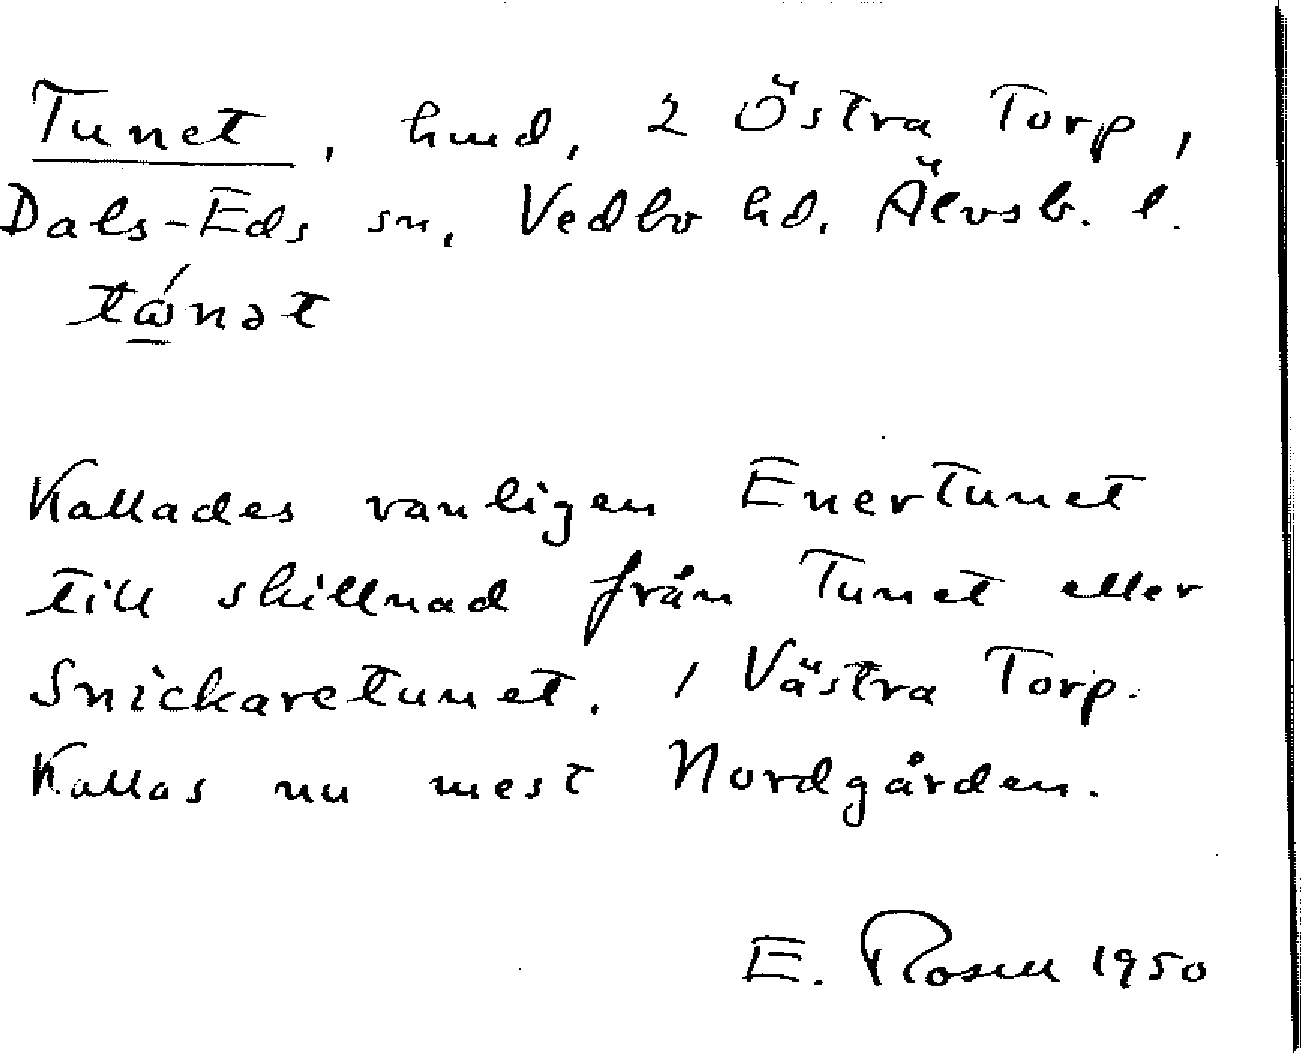 Tunet, hmd, 2 Östra Torp,
Dals-Eds sn, Vedbo hd. Älvsb. l.
tώ̲nət
Kallades vanligen Enertunet
till skillnad från Tunet eller
Snickaretunet, 1 Västra Torp.
Kallas nu mest Nordgården.
E. Rosell 1950